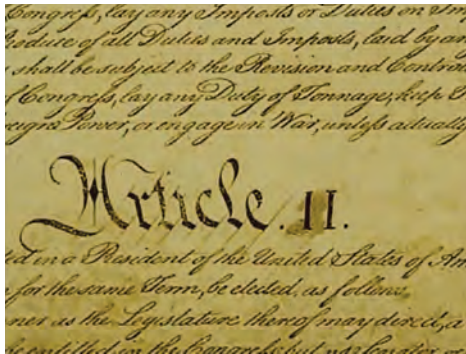 Congress, lay any Imposts or Duties on Im
Produce of all Duties and Imposts, laid by an
shall be subject to the Revision and Contro
Congress, lay any Duty of Tonnage, keep
reign Power, or engage in War, unless actually
Article. II.
ted in a President of the United States of Am
for the same Term, be elected, as follows
ner as the Legislature thereof may direct, a
be entitled in the Congress: but no Senator or